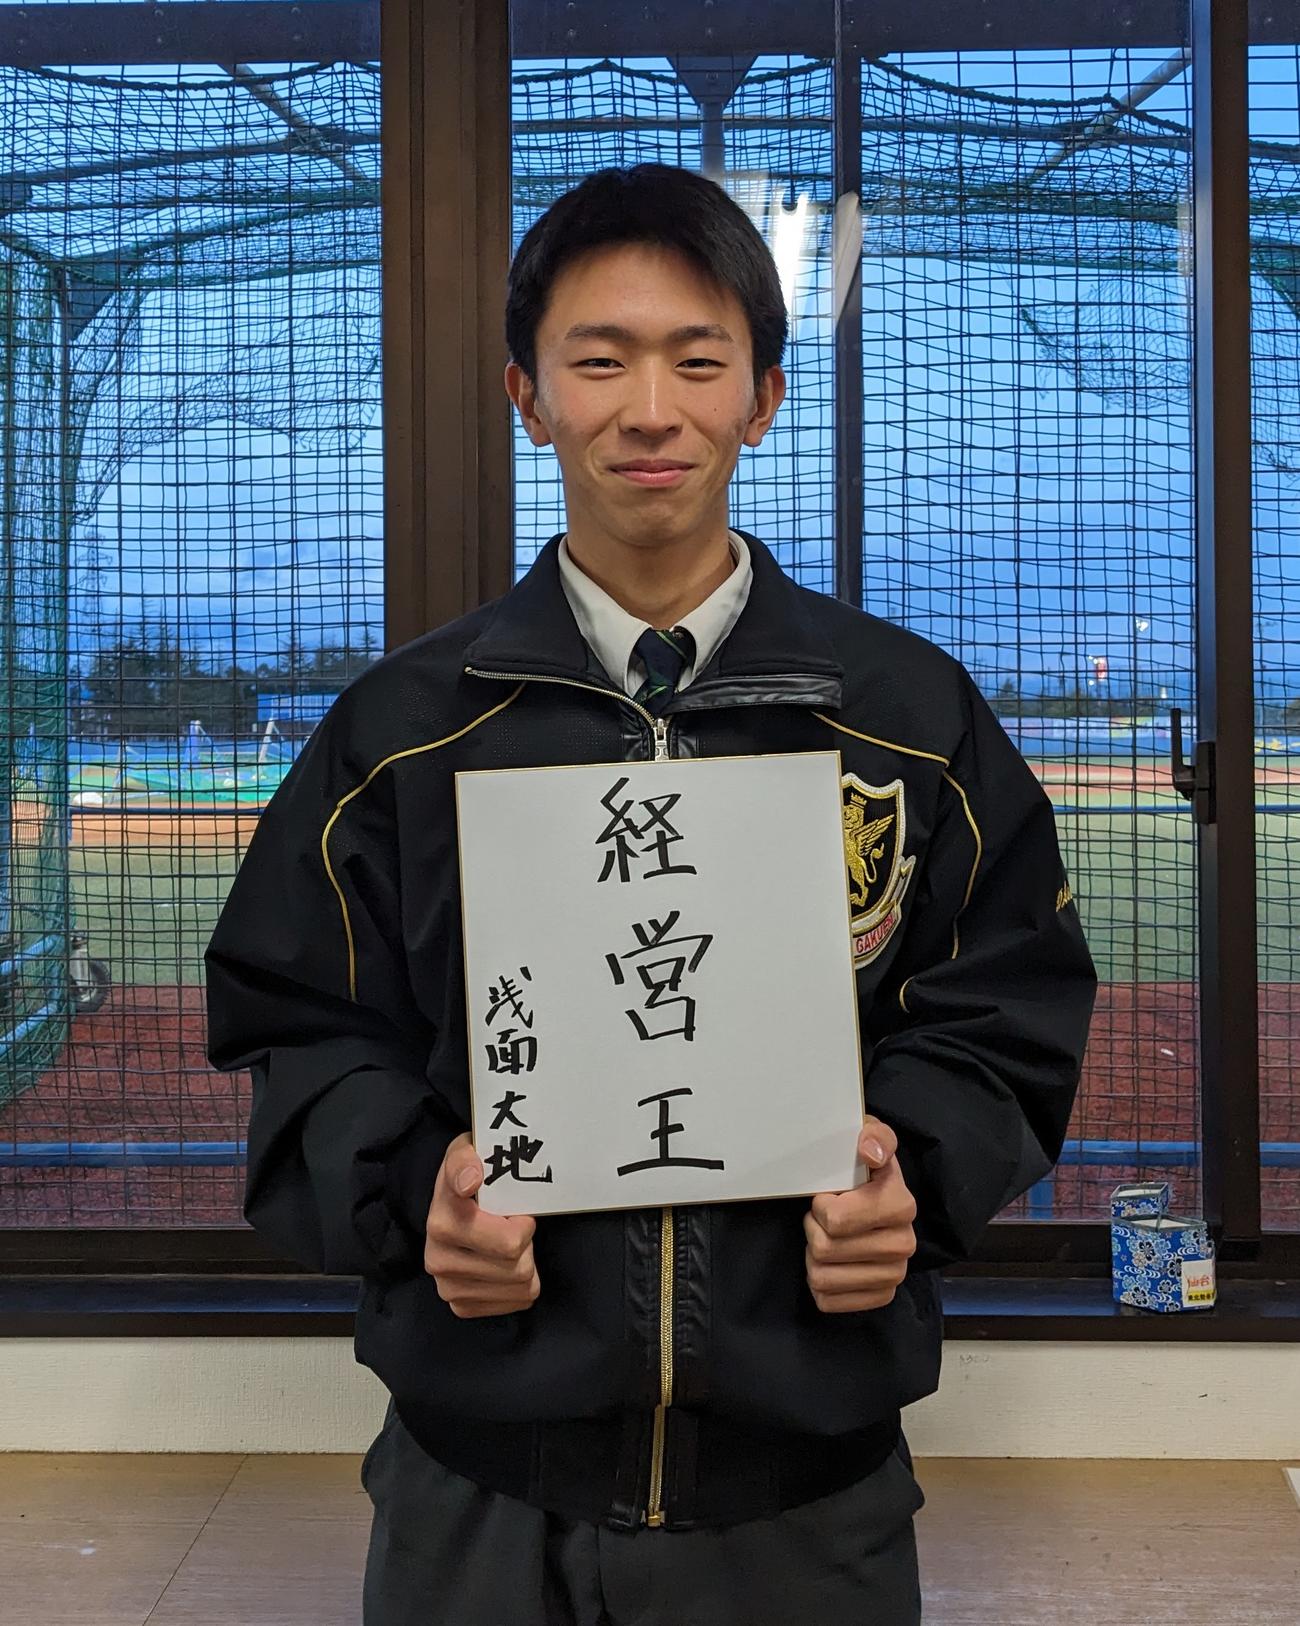 経営王
浅面大地
GAKUEN
仙台